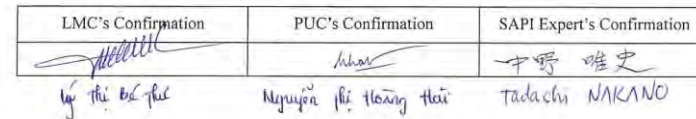 LMC's Confirmation PUC's Confirmation SAPI Expert's Confirmation
中野 唯史
Lý Thị Bé Nguyễn Phi Hoàng Hải Tadachi NAKANO